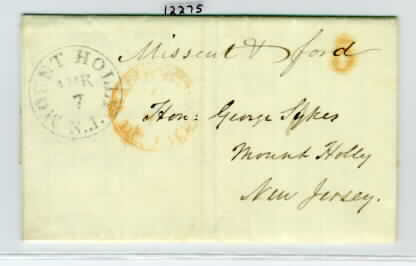 12275
Missent & ford
MOUNT HOLLY N.J.
APR
7
Hon: George Sykes
Mount Holly
New Jersey.